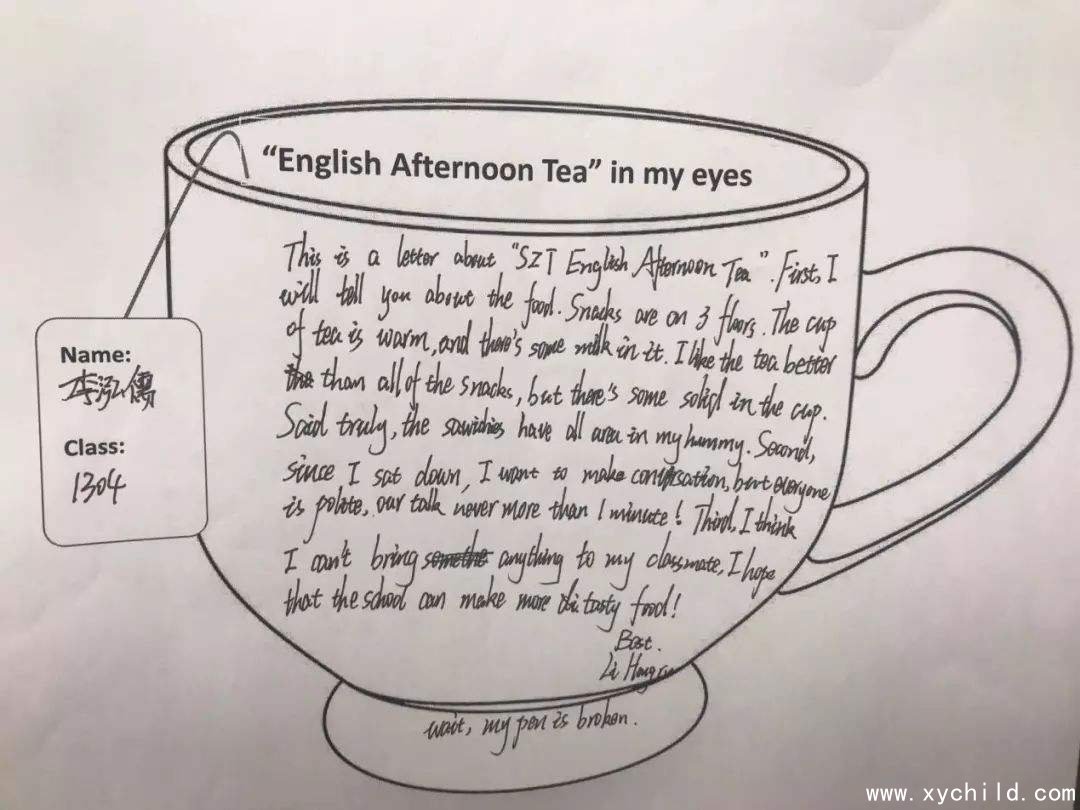 “English Afternoon Tea” in my eyes
This is a letter about "SZT English Afternoon Tea". First, I
will tell you about the food. Snacks are on 3 floors. The cup
of tea is warm, and there's some milk in it. I like the tea better
than all of the snacks, but there's some soligl in the cup.
Said truly, the sawidhies have all area in my hummy. Second,
since I sat down, I want to make conversation, but everyone
is polite, our talk never more than 1 minute! Third, I think
I can't bring anything to my classmate, I hope
that the school can make more tasty food!
Best.
Li
wait, my pen is broken.
Name:
李泓
Class:
1304
www.xychild.com